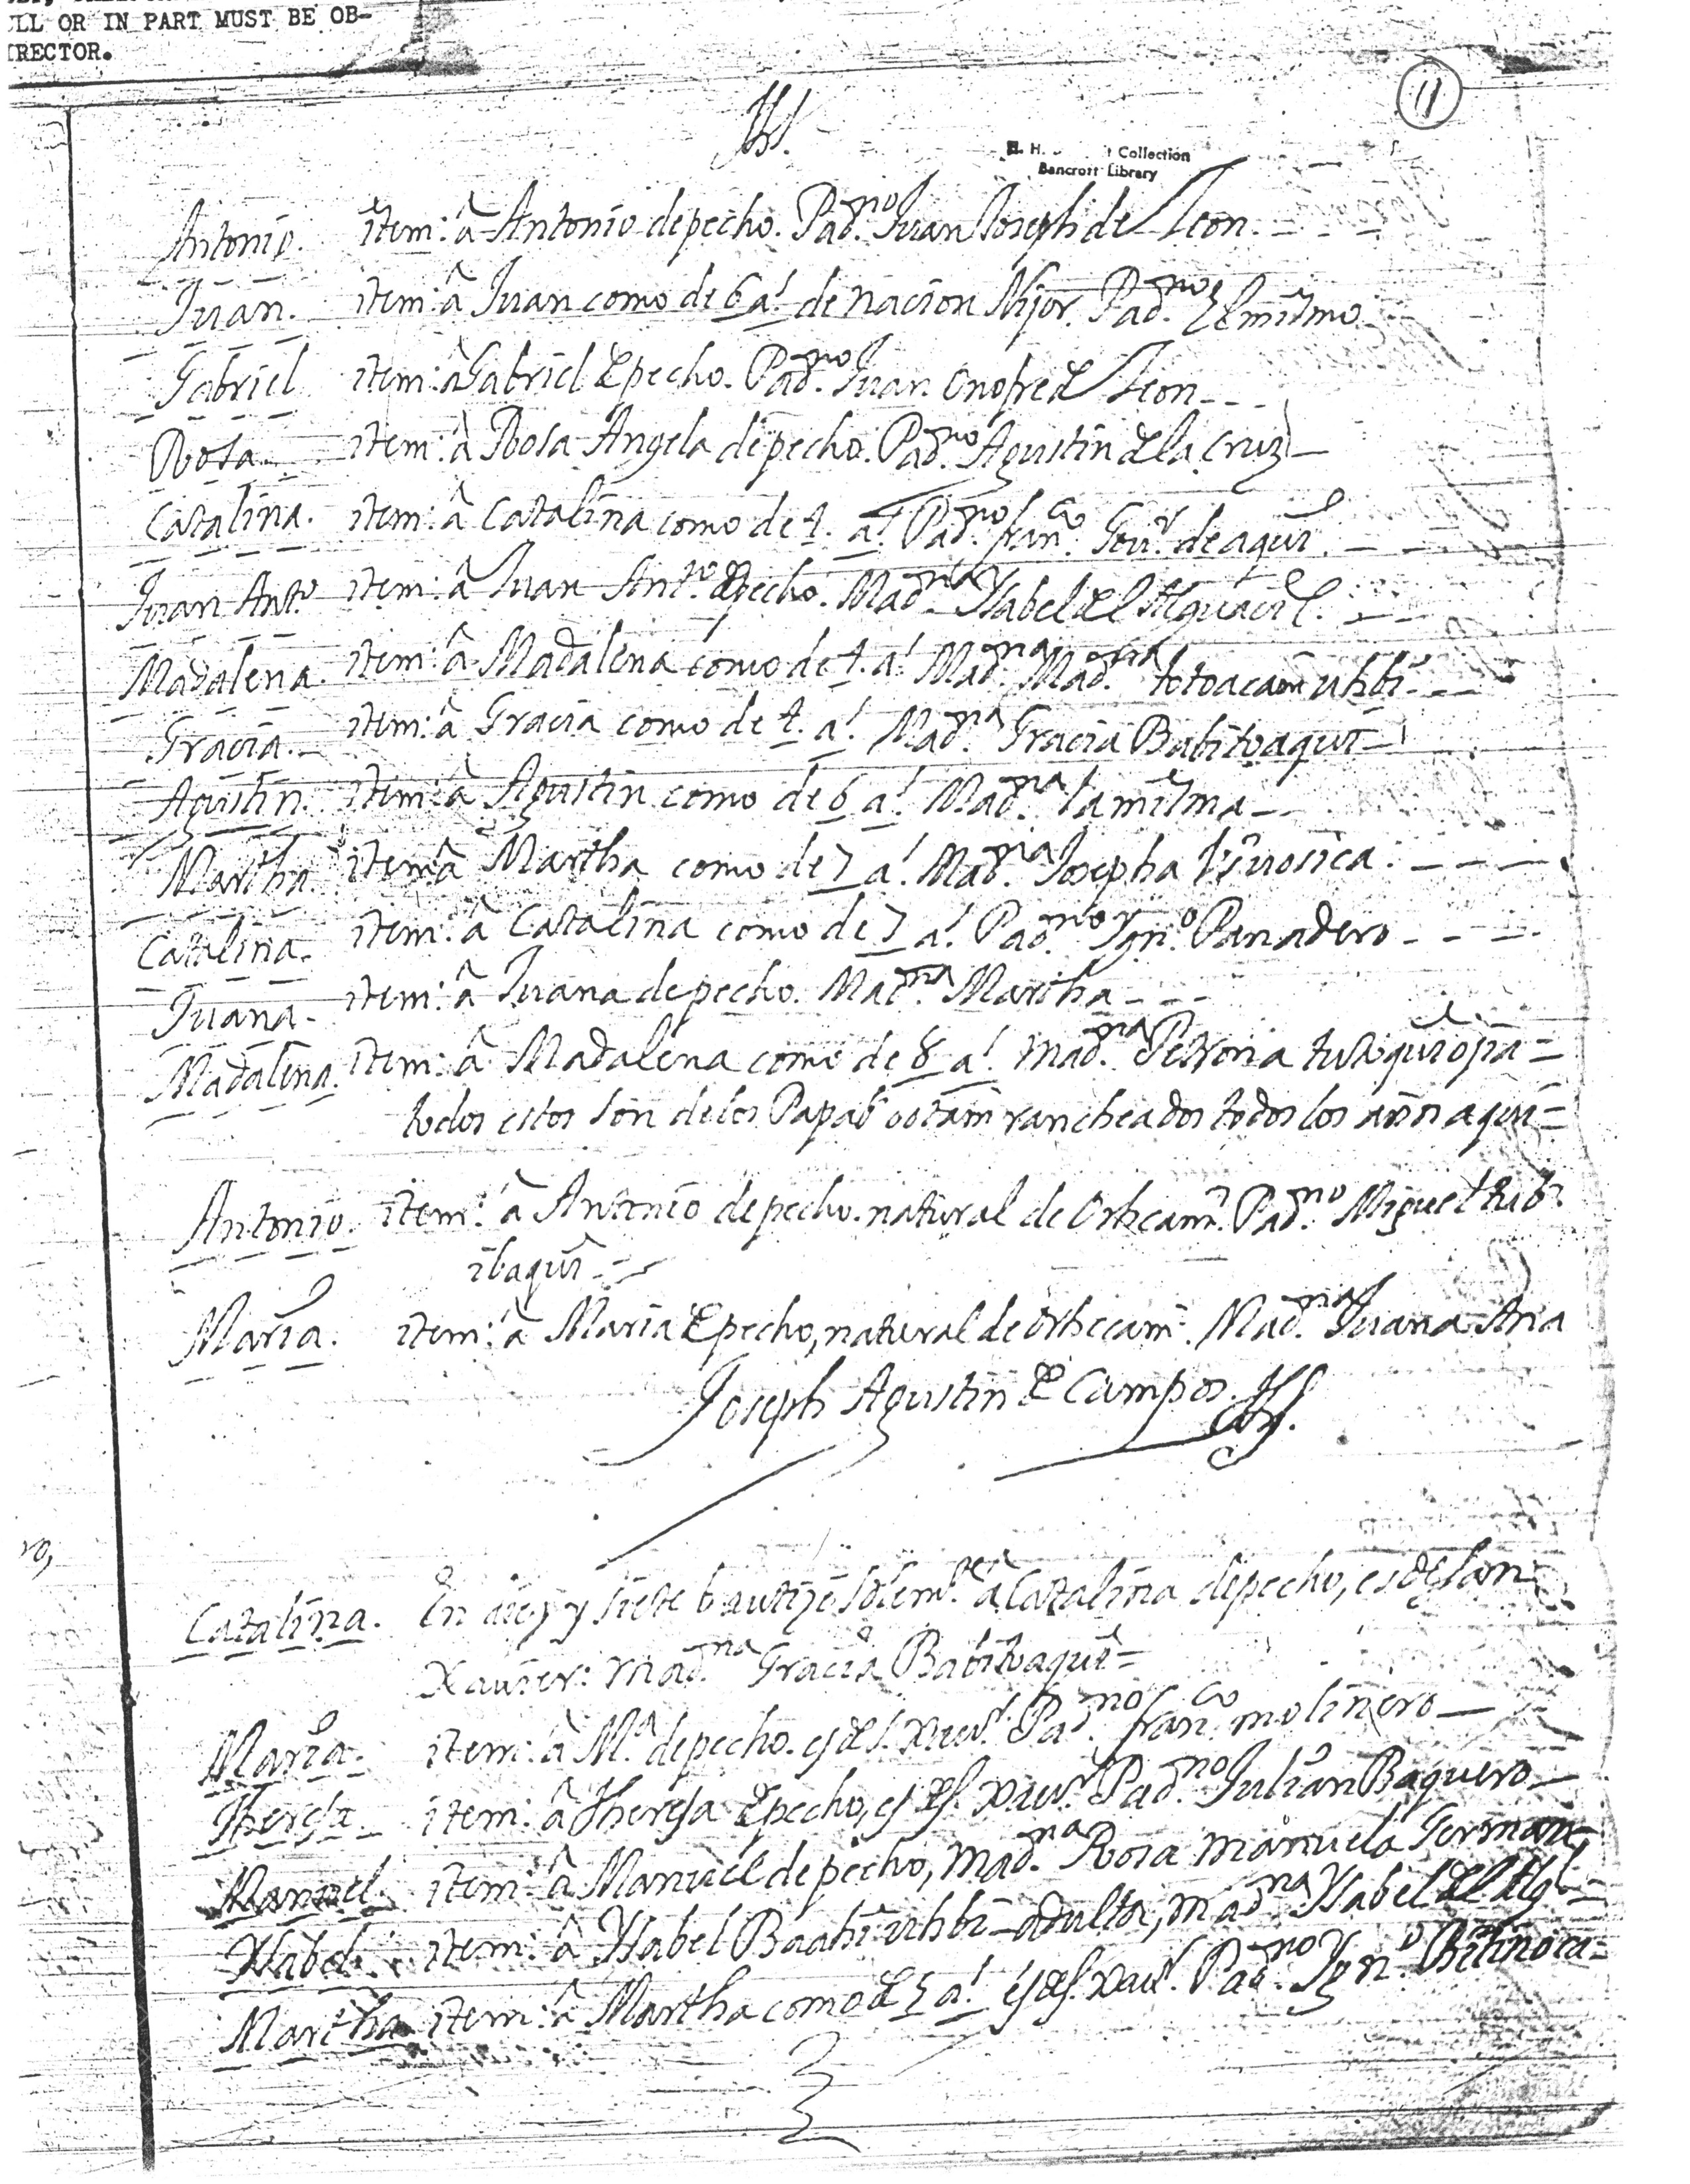 LL OR IN PART MUST BE OB-
RECTOR.
11
H. H. Collection
Bancroft Library
Antonio. item: â Antonio de pecho. Padno. Juan Joseph de Leon.
Juan. item: â Juan como de 6 as. de nacion Nijor. Padno. El mismo
Gabriel item: â Gabriel de pecho. Padno. Juan Onofre de Leon
Rosa. item: â Rosa Angela de pecho. Padno. Agustin de la Cruz
Catalina. item: â Catalina como de 4. as. Padno. franco. Govr. de aqui.
Juan Anto. item: â Juan Anto. de pecho. Madna. Ysabel del Alguacil.
Madalena. item: â Madalena como de 4. as. Madna.
Gracia. item: â Gracia como de 4. as. Madna. Gracia Babitoaqui
Agustin. item: â Agustin como de 6 as. Madna. la misma
Martha. item â Martha como de 7 as. Madna. Josepha
Catalina. item: â Catalina como de 7 as. Padno. Ygno. Panadero
Juana. item: â Juana de pecho. Madna. Martha
Madalena. item: â Madalena como de 8 as. Madna. Petrona
todos estos son de los rancheados todos los años aqui=
Antonio. item: â Antonio de pecho. natural de Padno. Miguel
ibaqui
Maria. item: â Maria de pecho, natural de Madna. Juana Ana
Joseph Agustin de Campos.
Catalina. En diez y siete bautizé solemte. â Catalina de pecho, es de San
Xavier: Madna. Gracia Babitoaqui=
Maria. item: â Ma. de pecho. es de S. Xavr. Padno. franco. molinero
Theresa. item: â Theresa de pecho, es de S. Xavr. Padno. Julian Baquero
Manuel. item: â Manuel de pecho, Madna. Rosa Manuela German
Ysabel. item: â Ysabel adulta, Madna. Ysabel del Algl.
Martha item: â Martha como de 5 as. es de S. Xavr. Padno. Ygno.